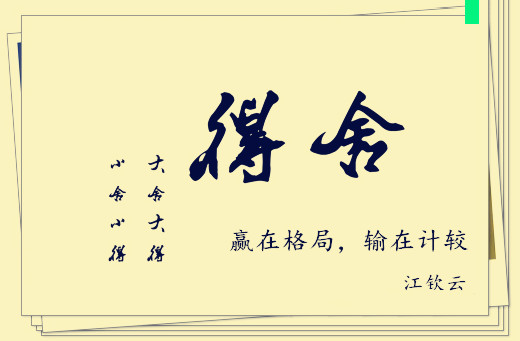 得舍
大舍大得
小舍小得
赢在格局，输在计较
江钦云